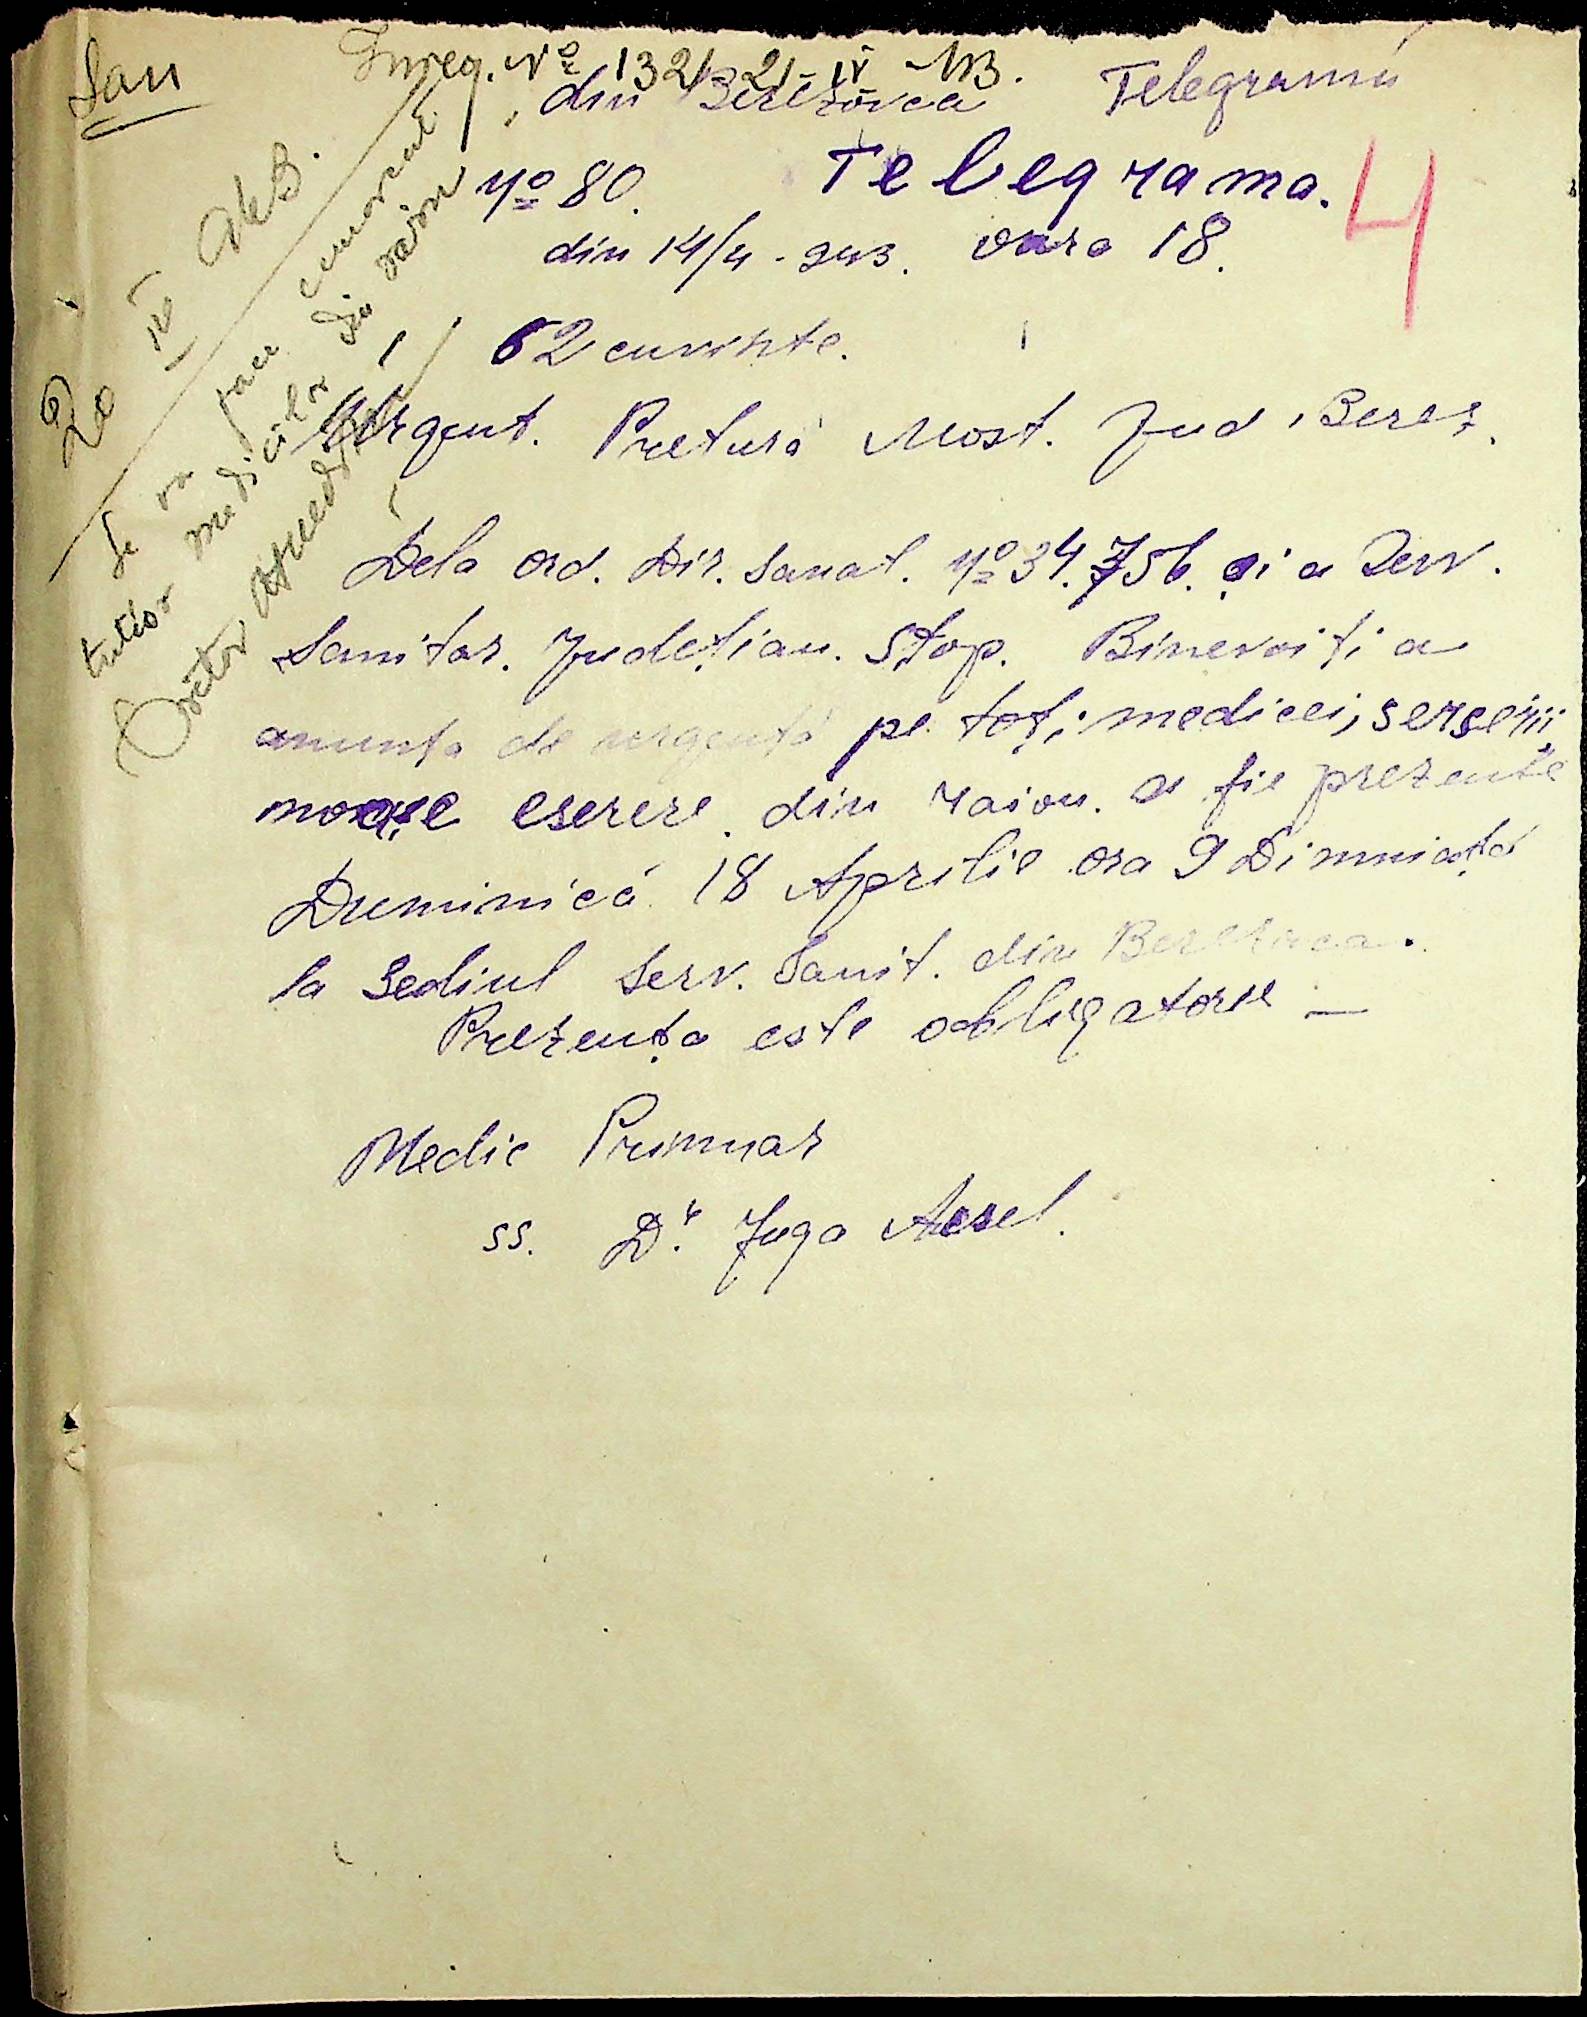 San
Inreg. No 1321 21-IV 943.
din Berezovca Telegramă
No 80. Telegrama. 4
din 14/4 - 943. oara 18.
62 cuvinte.
Urgent. Pretura Most. Jud Berez.
Dela ord. Dir. Sanat. No 34.756. si a Serv.
Sanitar. Județian. Stop. Binevoiți a
anunța de urgență pe toți medicei,
moașe din raion. a fie prezente
Duminică 18 Aprilie ora 9 Dimniață
la Sediul Serv. Sanit. din Berezovca.
Prezența este obligatorie —
Medic Primar
ss. Dr. Juga Aurel.
20 IV 943.
Se va face cunoscut
tutlor medicilor din raion